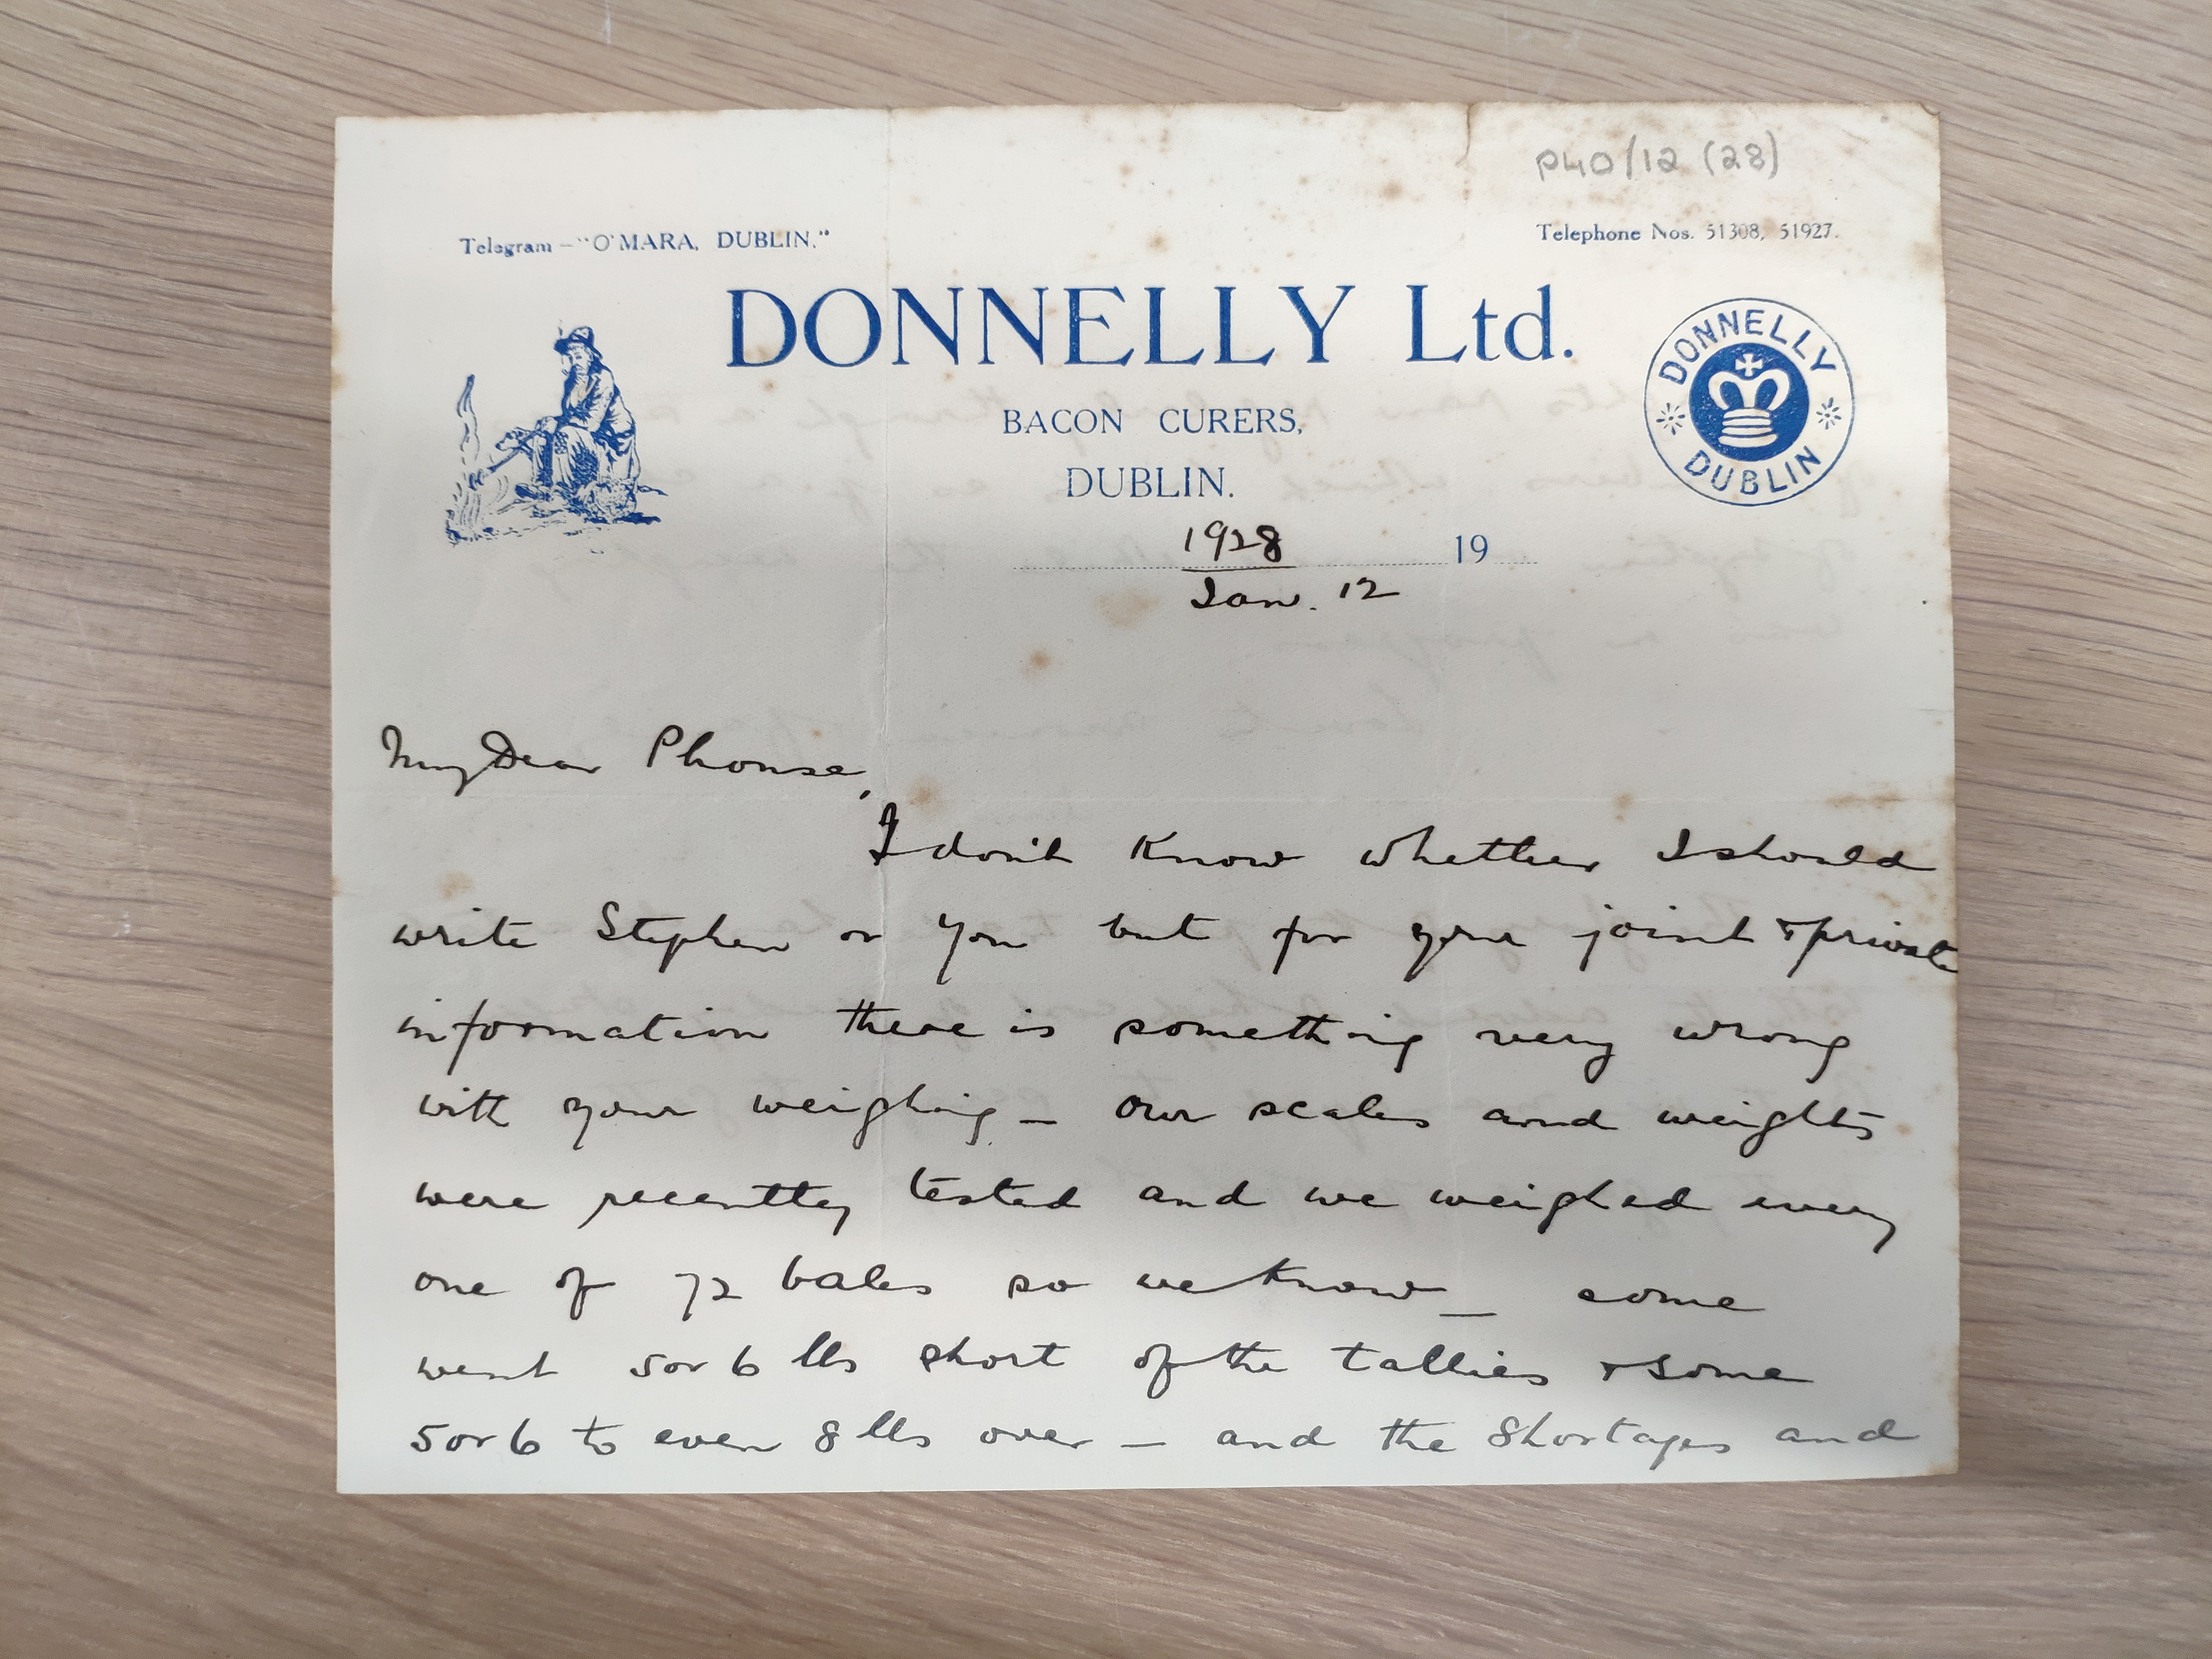 P40/12 (28)
Telegram – "O'MARA, DUBLIN."
Telephone Nos. 51308, 51927.
DONNELLY Ltd.
DONNELLY
DUBLIN
BACON CURERS,
DUBLIN.
1928
19
Jan. 12
My Dear Phonse,
I don't know whether I should
write Stephen or you but for your joint & private
information there is something very wrong
with your weighing – Our scales and weights
were recently tested and we weighed every
one of 72 bales so we know – some
went 5 or 6 lbs short of the tallies & some
5 or 6 to even 8 lbs over – and the shortages and